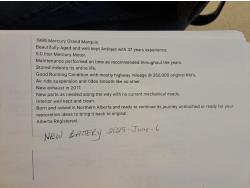 1988 Mercury Grand Marquis.
Beautifully Aged and well kept Antique with 37 years experience.
5.0 liter Mercury Motor.
Maintenance performed on time as recommended throughout the years.
Stored indoors its entire life.
Good Running Condition with mostly highway mileage @ 350,000 original km's.
Air ride suspension and rides smooth like no other.
New exhaust in 2017.
New parts as needed along the way with no current mechanical needs.
Interior well kept and clean.
Born and raised in Northern Alberta and ready to continue its journey untouched or ready for your
restoration ideas to bring it back to original.
Alberta Registered.
NEW BATTERY 2025-June-6